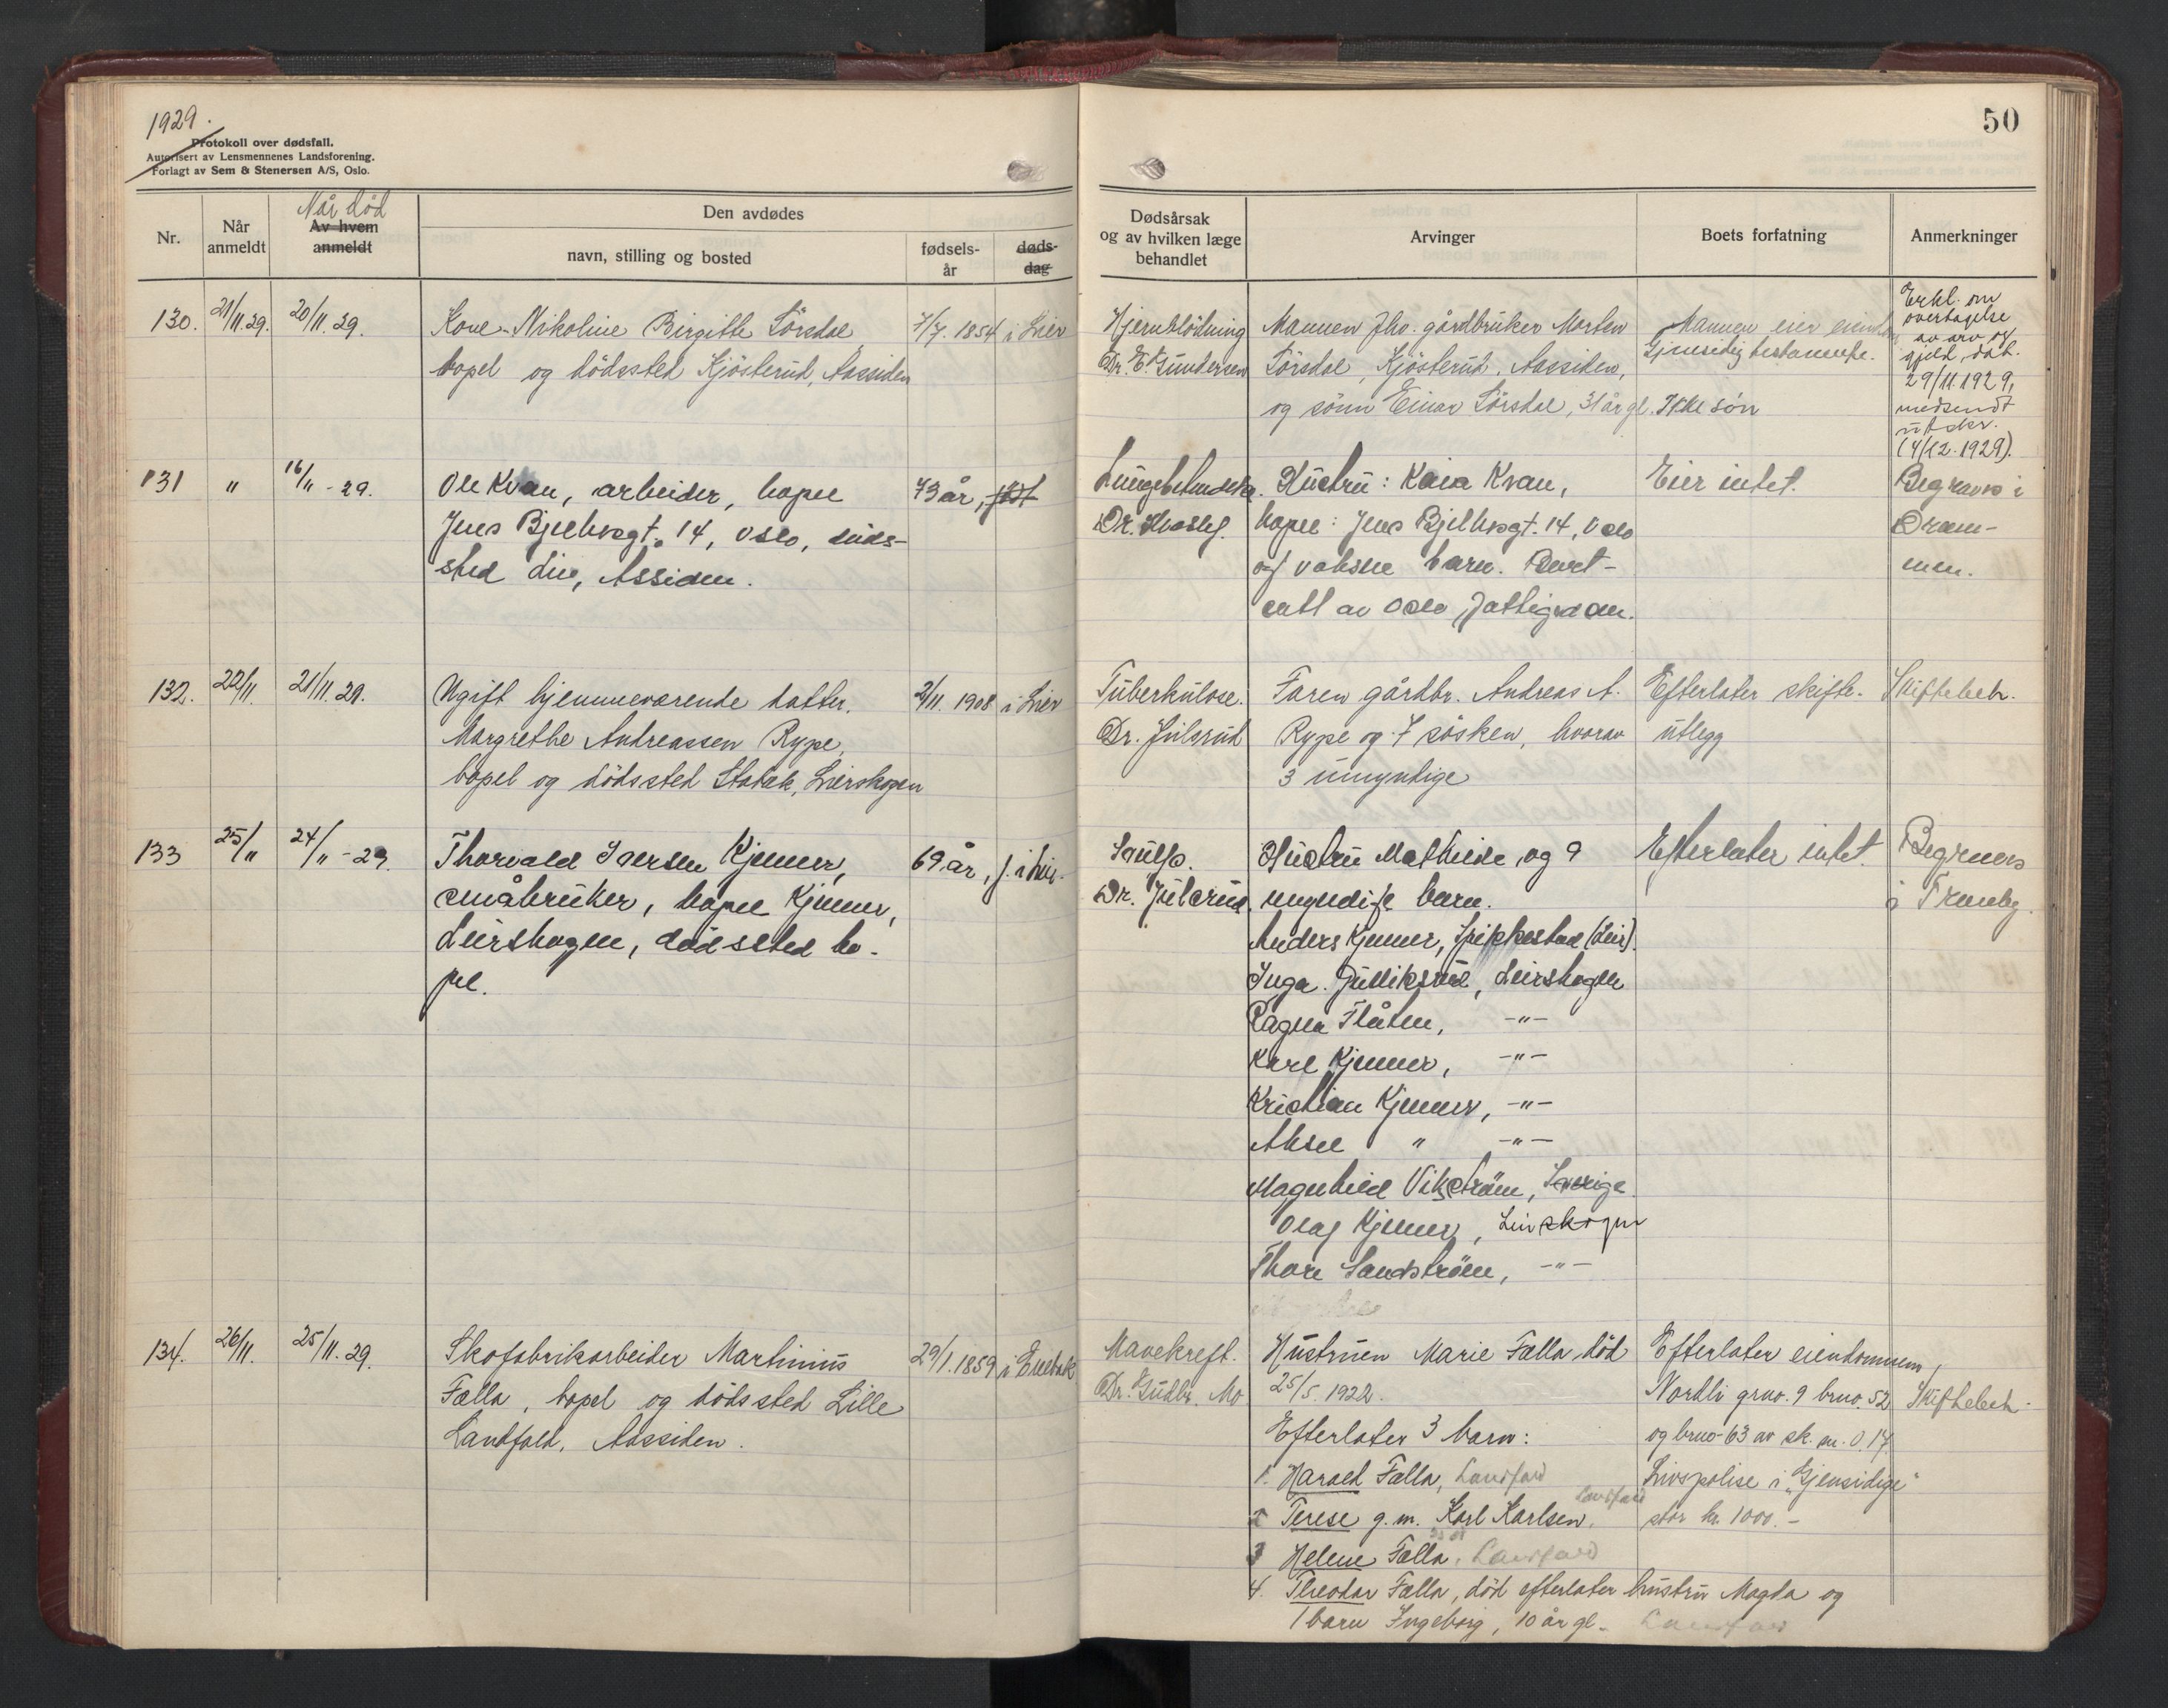 1929.
Protokoll over dødsfall.
Autorisert av Lensmennenes Landsforening.
Forlagt av Sem & Stenersen A/S, Oslo.
50
Nr.
Når anmeldt
Når død
Av hvem anmeldt
Den avdødes
navn, stilling og bosted
fødsels-
år
døds-
dag
Dødsårsak
og av hvilken læge
behandlet
Arvinger
Boets forfatning
Anmerkninger
130. 21/11.29. 20/11.29. Kone Nikoline Birgitte Sörsdal 7/7. 1854 i Lier
bopel og dödssted Kjösterud, Aassiden
Hjerneblödning
Dr. E. Gundersen
Mannen fhv. gårdbruker Morten
Sörsdal, Kjösterud, Aassiden,
og sönn Einar Sörsdal, 31 år gl.
Mannen eier
Gjensidig testamente.
Ikke søn
Erkl. om
overtagelse
av arv og
gjeld, dat.
29/11.1929,
medsendt
utskr.
(4/12.1929).
131 " 16/11-29. Ole Kvan, arbeider, bopel 73 år, født
Jens Bjelkesgt. 14, Oslo, döds-
sted Lier, Assiden.
Lungebetendelse.
Dr.
Hustru: Kaia Kvan,
bopel: Jens Bjelkesgt. 14, Oslo
og voksne barn. Bort-
satt av Oslo Fattigvesen.
Eier intet.
Begraves i
Dram-
men.
132. 22/11. 21/11.29. Ugift hjemmeværende datter. 2/11. 1908 i Lier
Margrethe Andreassen Rype,
bopel og dödssted Stabæk, Lierskogen
Tuberkulose.
Dr. Julsrud
Faren gårdbr. Andreas A.
Rype og 7 sösken, hvorav
3 umyndige
Efterlater skifte-
utlegg
Skiftebeh.
133 25/11 24/11-29. Thorvald Iversen Kjenner, 69 år, f. i Lier.
småbruker, bopel Kjenner,
Lierskogen, dödssted bo-
pel.
Dr. Julsrud.
Hustru Mathilde, og 9
myndige barn.
Anders Kjenner, Spikkestad (Lier).
Inga Gulliksrud, Lierskogen
Ragna Flåten, -"-
Karl Kjenner, -"-
Kristian Kjenner, -"-
Aksel " -"-
Magnhild Vikström, Sverige
Olaf Kjenner, Lierskogen
Thora Sandström, -"-
Efterlater intet.
Begraves
i Tranby.
134. 26/11. 25/11.29. Skofabrikarbeider Martinius 29/1.1859 i Enebak
Falla, bopel og dödssted Lille
Landfald, Aassiden.
Mavekreft.
Dr. Gudbr. Mo
Hustruen Marie Falla död
25/5. 1922.
Efterlater 3 barn:
1. Harald Falla, Landfald
2 Terese g.m. Karl Karlsen. Landfald
3 Helene Falla, Landfald
4. Theodor Falla, död efterlater hustru Magda og
1 barn Ingeborg, 10 år gl. Landfald
Efterlater eiendommen,
Nordli grno. 9 brno. 52
og brno 63 av sk. m. 0.17.
Livspolise i "Gjensidige"
stor kr. 1000.-
Skiftebeh.